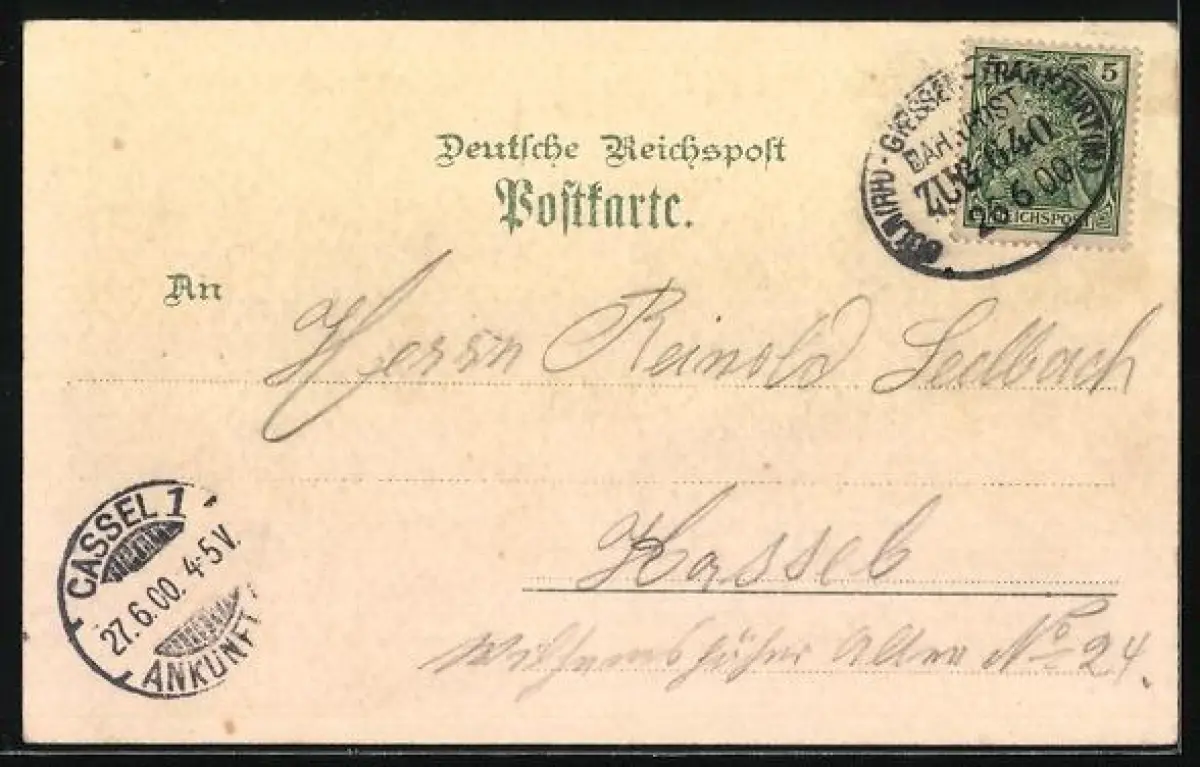 Deutsche Reichspost
Postkarte.
5
REICHSPOST
CÖLN(RH)-GIESSEN-FRANKFURT(M)
BAHNPOST
ZUG 640
26 6 00
An
Herrn Reinold Seelbach
Kassel
Wilhemshöher Allee No 24.
CASSEL 1
27.6.00. 4-5V.
ANKUNFT